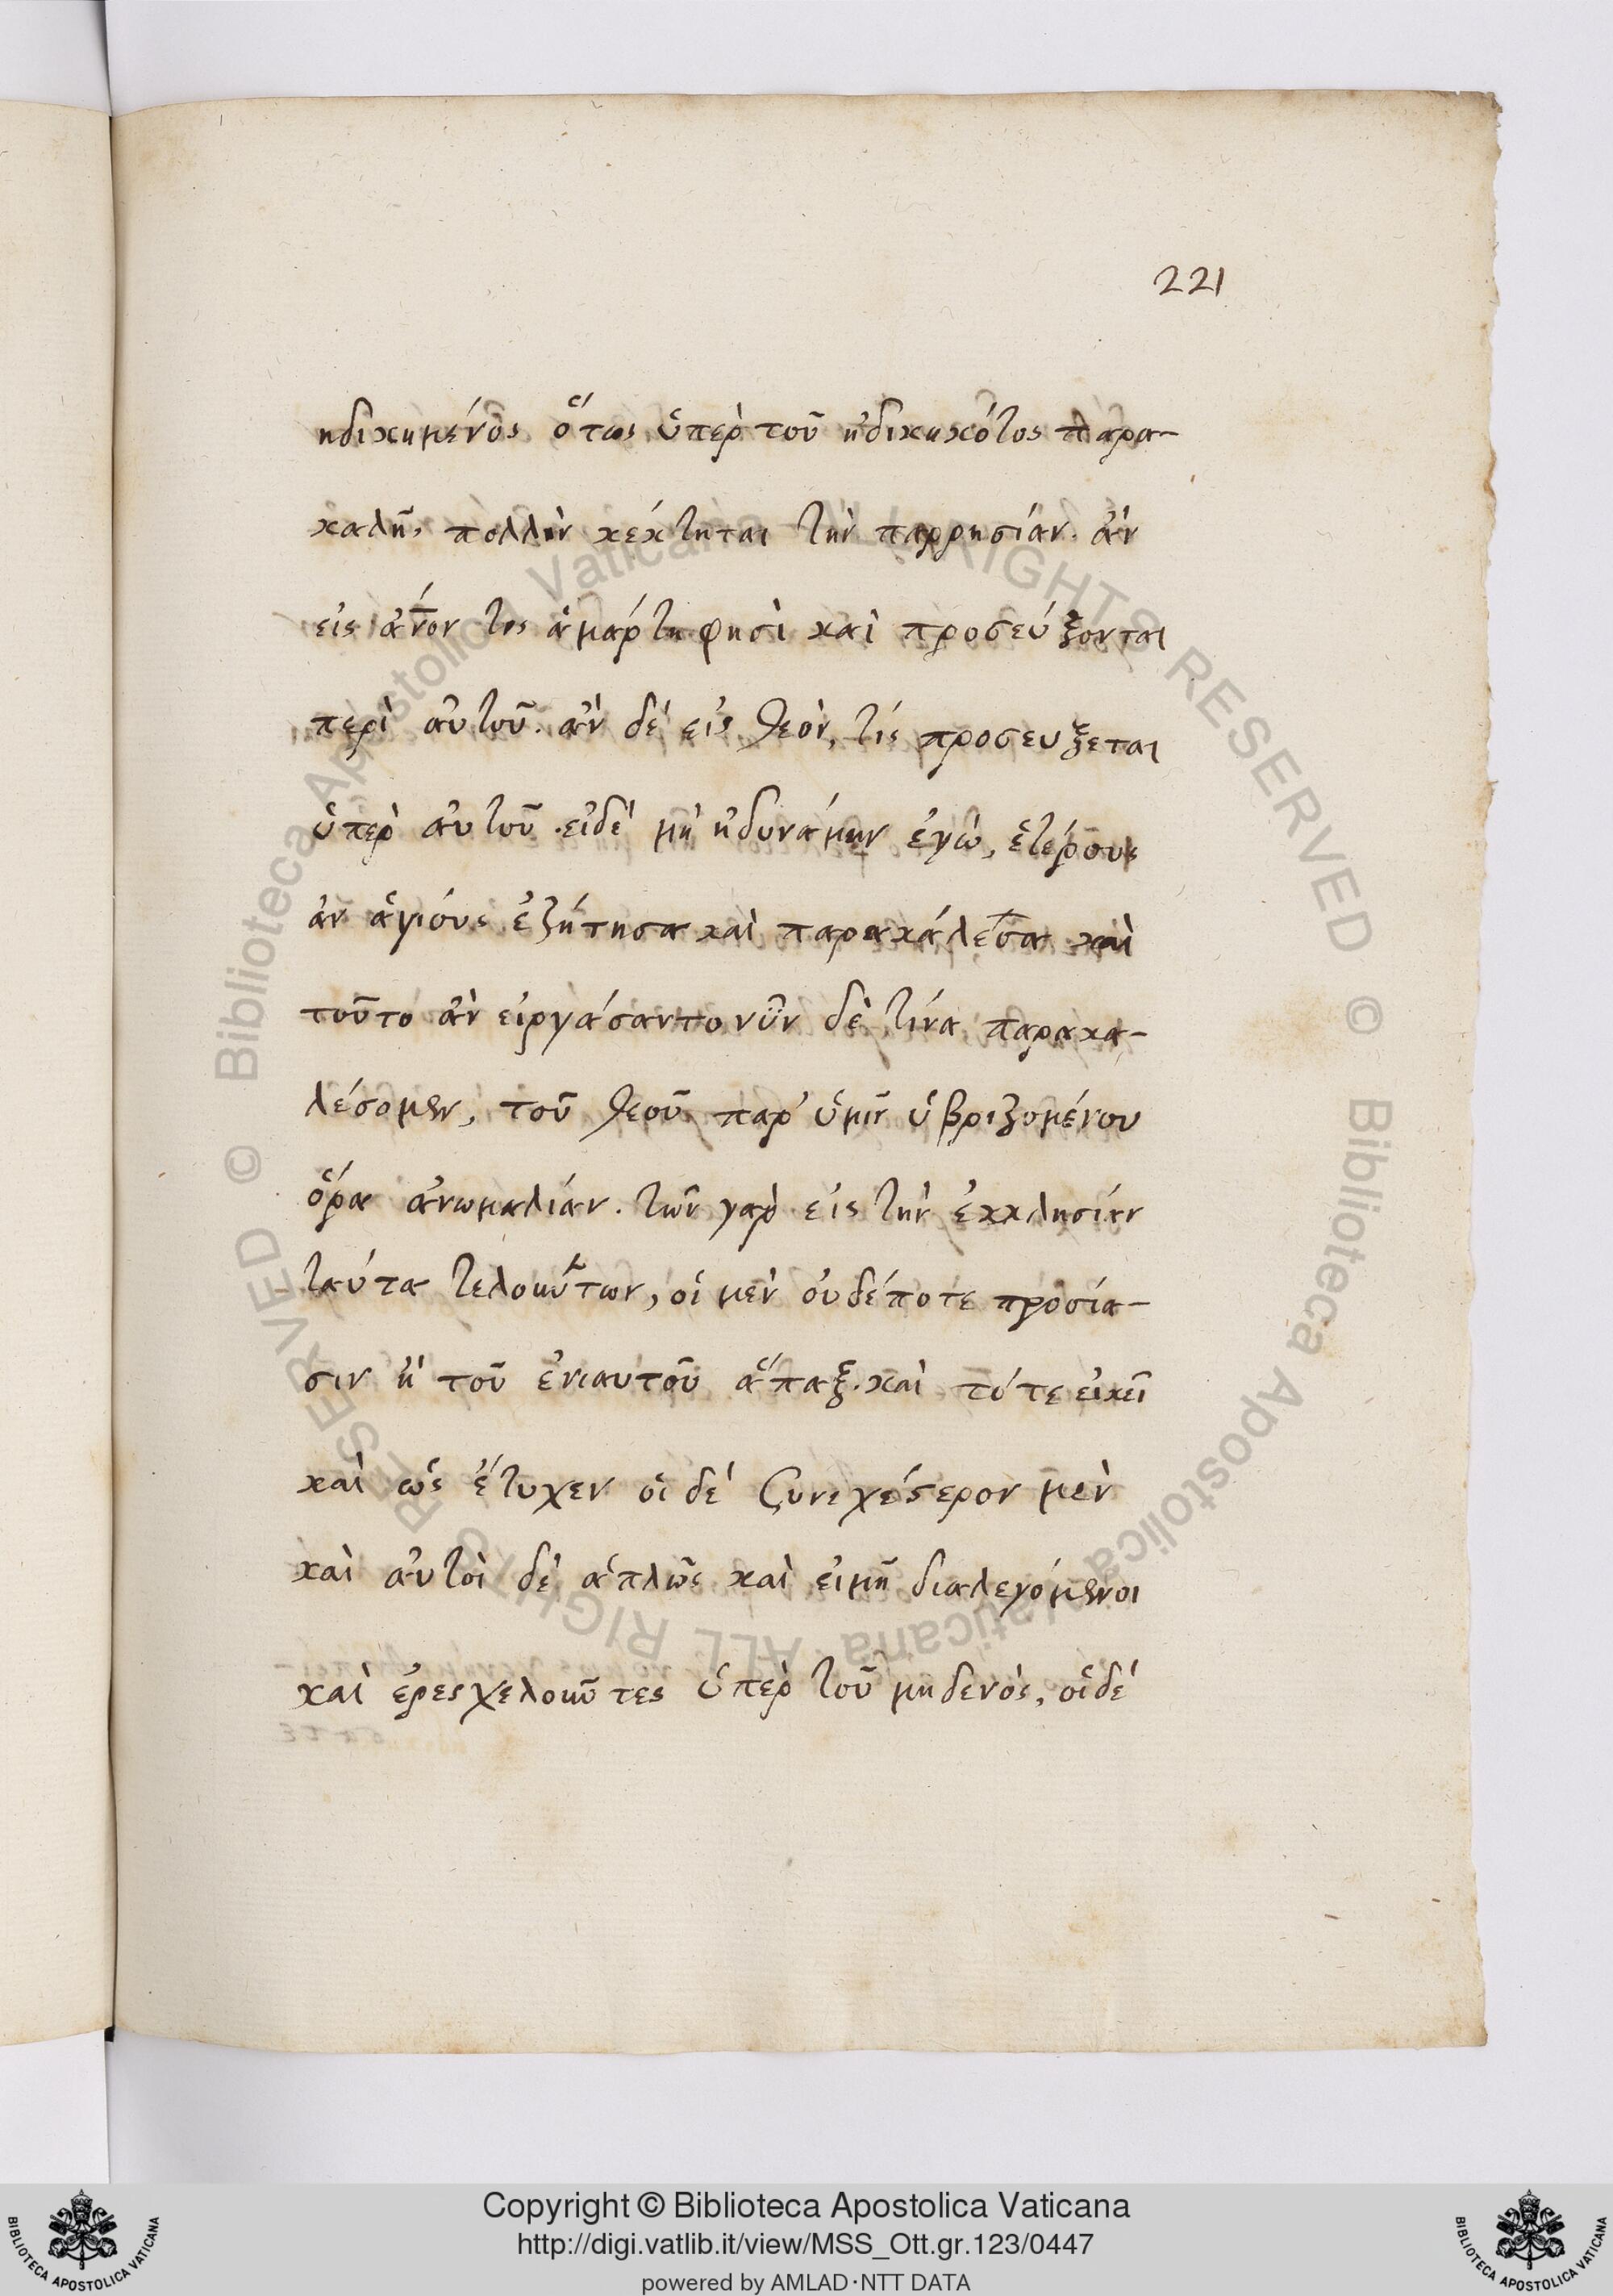 221
ηδικημένος ὅταν ὑπὲρ τοῦ ἠδικηκότος παρα-
καλῇ, πολλὴν κέκτηται τὴν παρρησίαν. ἂν
εἰς ἄν̅ον τὶς ἁμάρτη φησὶ καὶ προσεύξονται
περὶ αὐτοῦ. ἂν δὲ εἰς θεὸν, τίς προσευξεται
ὑπὲρ αὐτοῦ. εἰδὲ μὴ ἠδυνάμην ἐγὼ, ἑτέρους
ἂν ἁγιόυς ἐζήτησα καὶ παρακάλεσα καὶ
τοῦτο ἂν εἰργάσαντο νῦν δὲ τίνα παρακα-
λέσομεν, τοῦ θεοῦ παρ' ὑμῖν ὑβριζομένου
ὅρα ἀνωμαλίαν. τῶν γαρ εἰς τὴν ἐκκλησίαν
ταύτα τελούντων, οἱ μὲν οὐδέποτε προσία-
σιν ἢ τοῦ ἐνιαυτοῦ ἅπαξ. καὶ τότε εἰκεῖ
καὶ ὡς ἔτυχεν οἱ δὲ συνεχέστερον μὲν
καὶ αὐτοὶ δὲ ἁπλῶς καὶ εἰμῆ διαλεγόμενοι
καὶ ἐρεσχελοῦντες ὑπὲρ τοῦ μηδενὸς, οἱ δὲ
© Biblioteca Apostolica Vaticana ALL RIGHTS RESERVED © Biblioteca Apostolica Vaticana ALL RIGHTS RESERVED
Copyright © Biblioteca Apostolica Vaticana
http://digi.vatlib.it/view/MSS_Ott.gr.123/0447
powered by AMLAD·NTT DATA
BIBLIOTECA APOSTOLICA VATICANA
BIBLIOTECA APOSTOLICA VATICANA